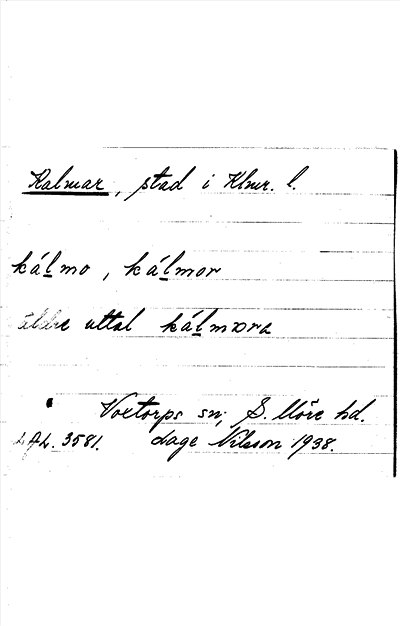 Kalmar, stad i Klmr. l.
kálmo, kálmor
äldre uttal kálmora
Voxtorps sn; S. Möre hd.
LAL. 3581. Sage Nilsson 1938.